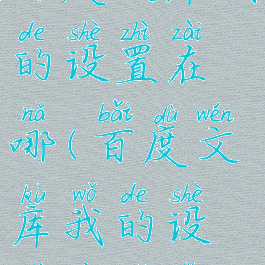 de shè zhì zài
的设置在
nǎ bǎi dù wén
哪(百度文
kù wǒ de shè
库我的设